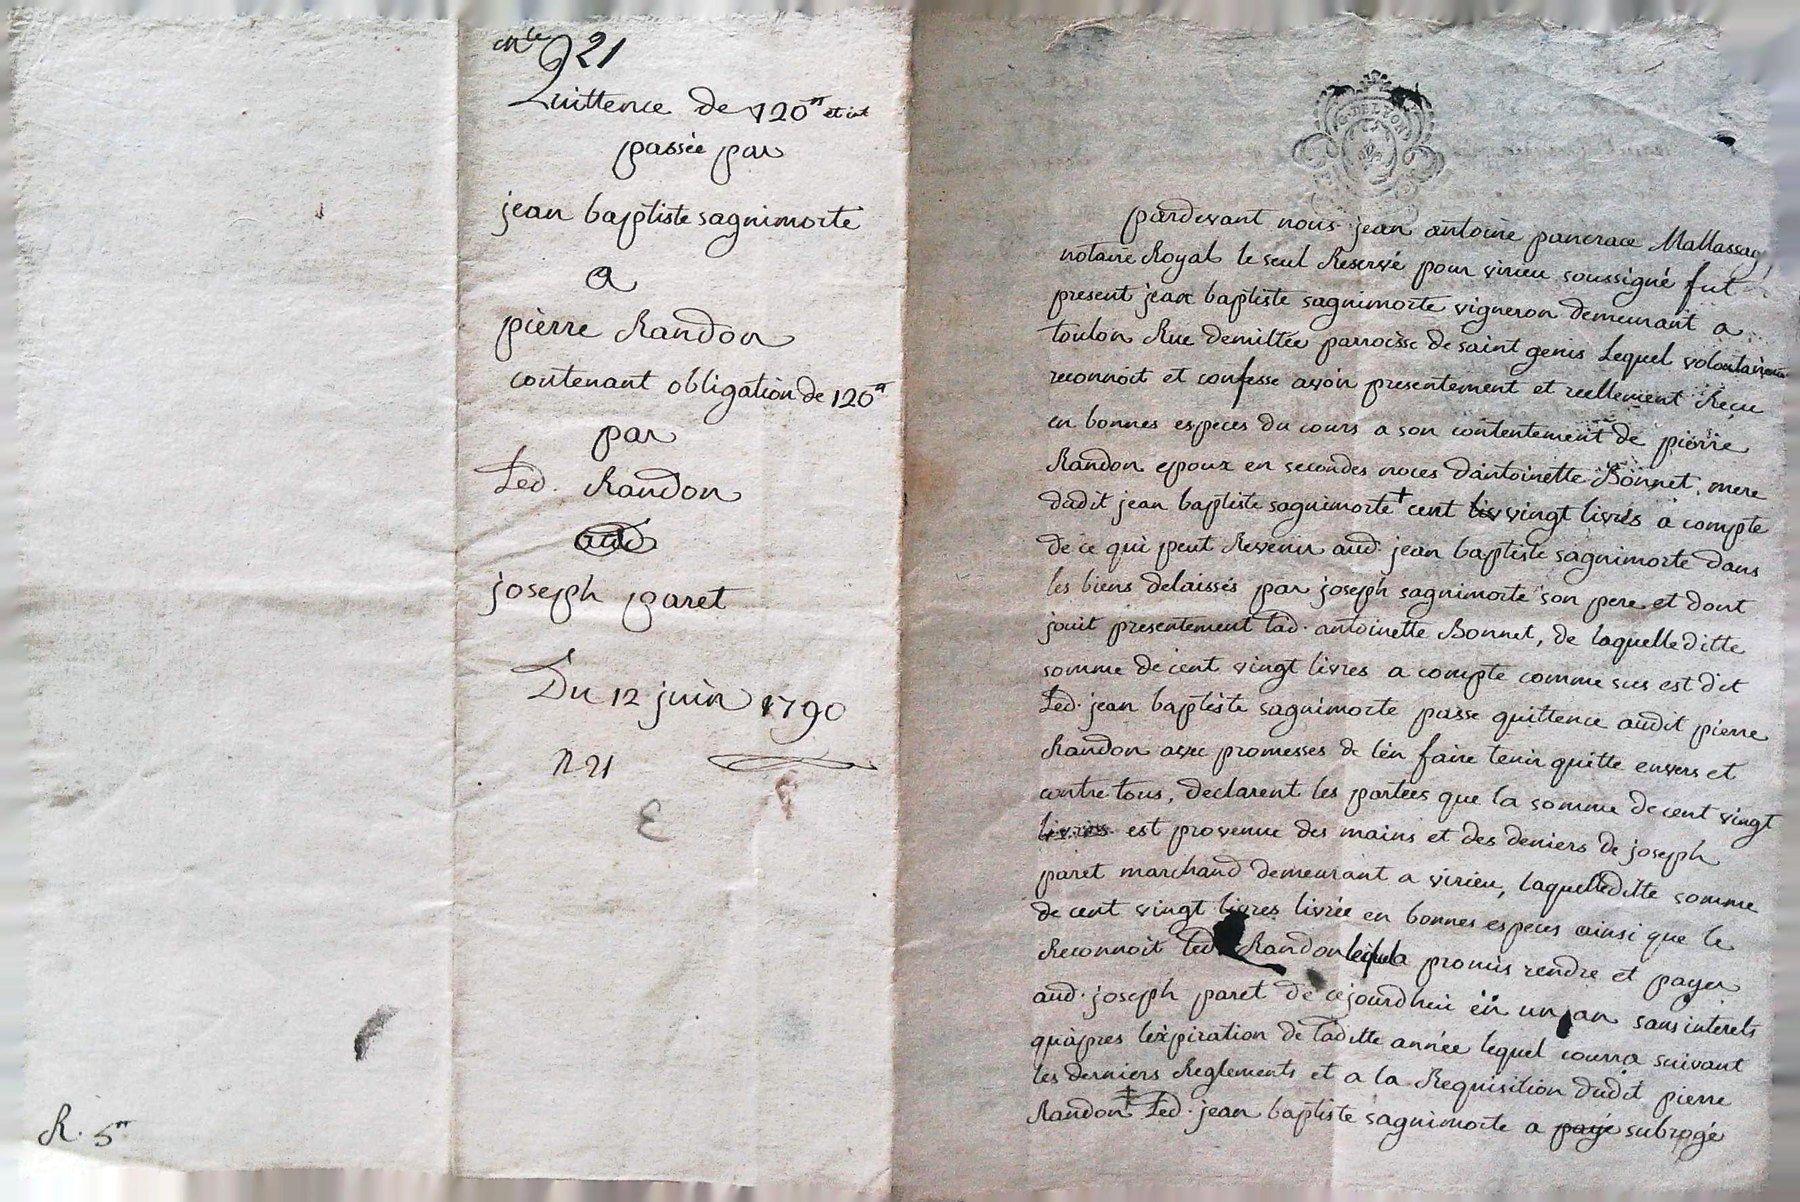 21
Quittence de 120# et int
passée par
jean baptiste sagnimorte
a
pierre Randon
contenant obligation de 120#
par
Led. Randon
aud
joseph paret
Du 12 juin 1790
n 21
E
R. 5#
G. DE LYON
pardevant nous jean antoine pancrace Mallassag
notaire Royal le seul Reservé pour virieu soussigné fut
present jean baptiste sagnimorte vigneron demeurant a
toulon Rue demiltée parroisse de saint genis Lequel volontairement
reconnoit et confesse avoir presentement et reellement Recu
en bonnes especes du cours a son contentement de pierre
Randon epoux en secondes noces dantoinette Bonnet, mere
dudit jean baptiste sagnimorte + cent liv vingt livres a compte
de ce qui peut Revenir aud. jean baptiste sagnimorte dans
les biens delaissés par joseph sagnimorte son pere et dont
jouit presentement lad. antoinette Bonnet, de laquelle ditte
somme de cent vingt livres a compte comme sus est dit
Led. jean baptiste sagnimorte passe quittence audit pierre
Randon avec promesses de l'en faire tenir quitte envers et
contre tous, declarent les parties que la somme de cent vingt
livres est provenue des mains et des deniers de joseph
paret marchand demeurant a virieu, laquelle ditte somme
de cent vingt livres livrée en bonnes especes ainsi que le
Reconnoit led. Randon lequel a promis rendre et payer
aud. joseph paret de cejourdhui en un an sans interets
qu'apres l'expiration de laditte année lequel courra suivant
les derniers Reglements et a la Requisition dudit pierre
Randon ‡ Led. jean baptiste sagnimorte a payé subrogé